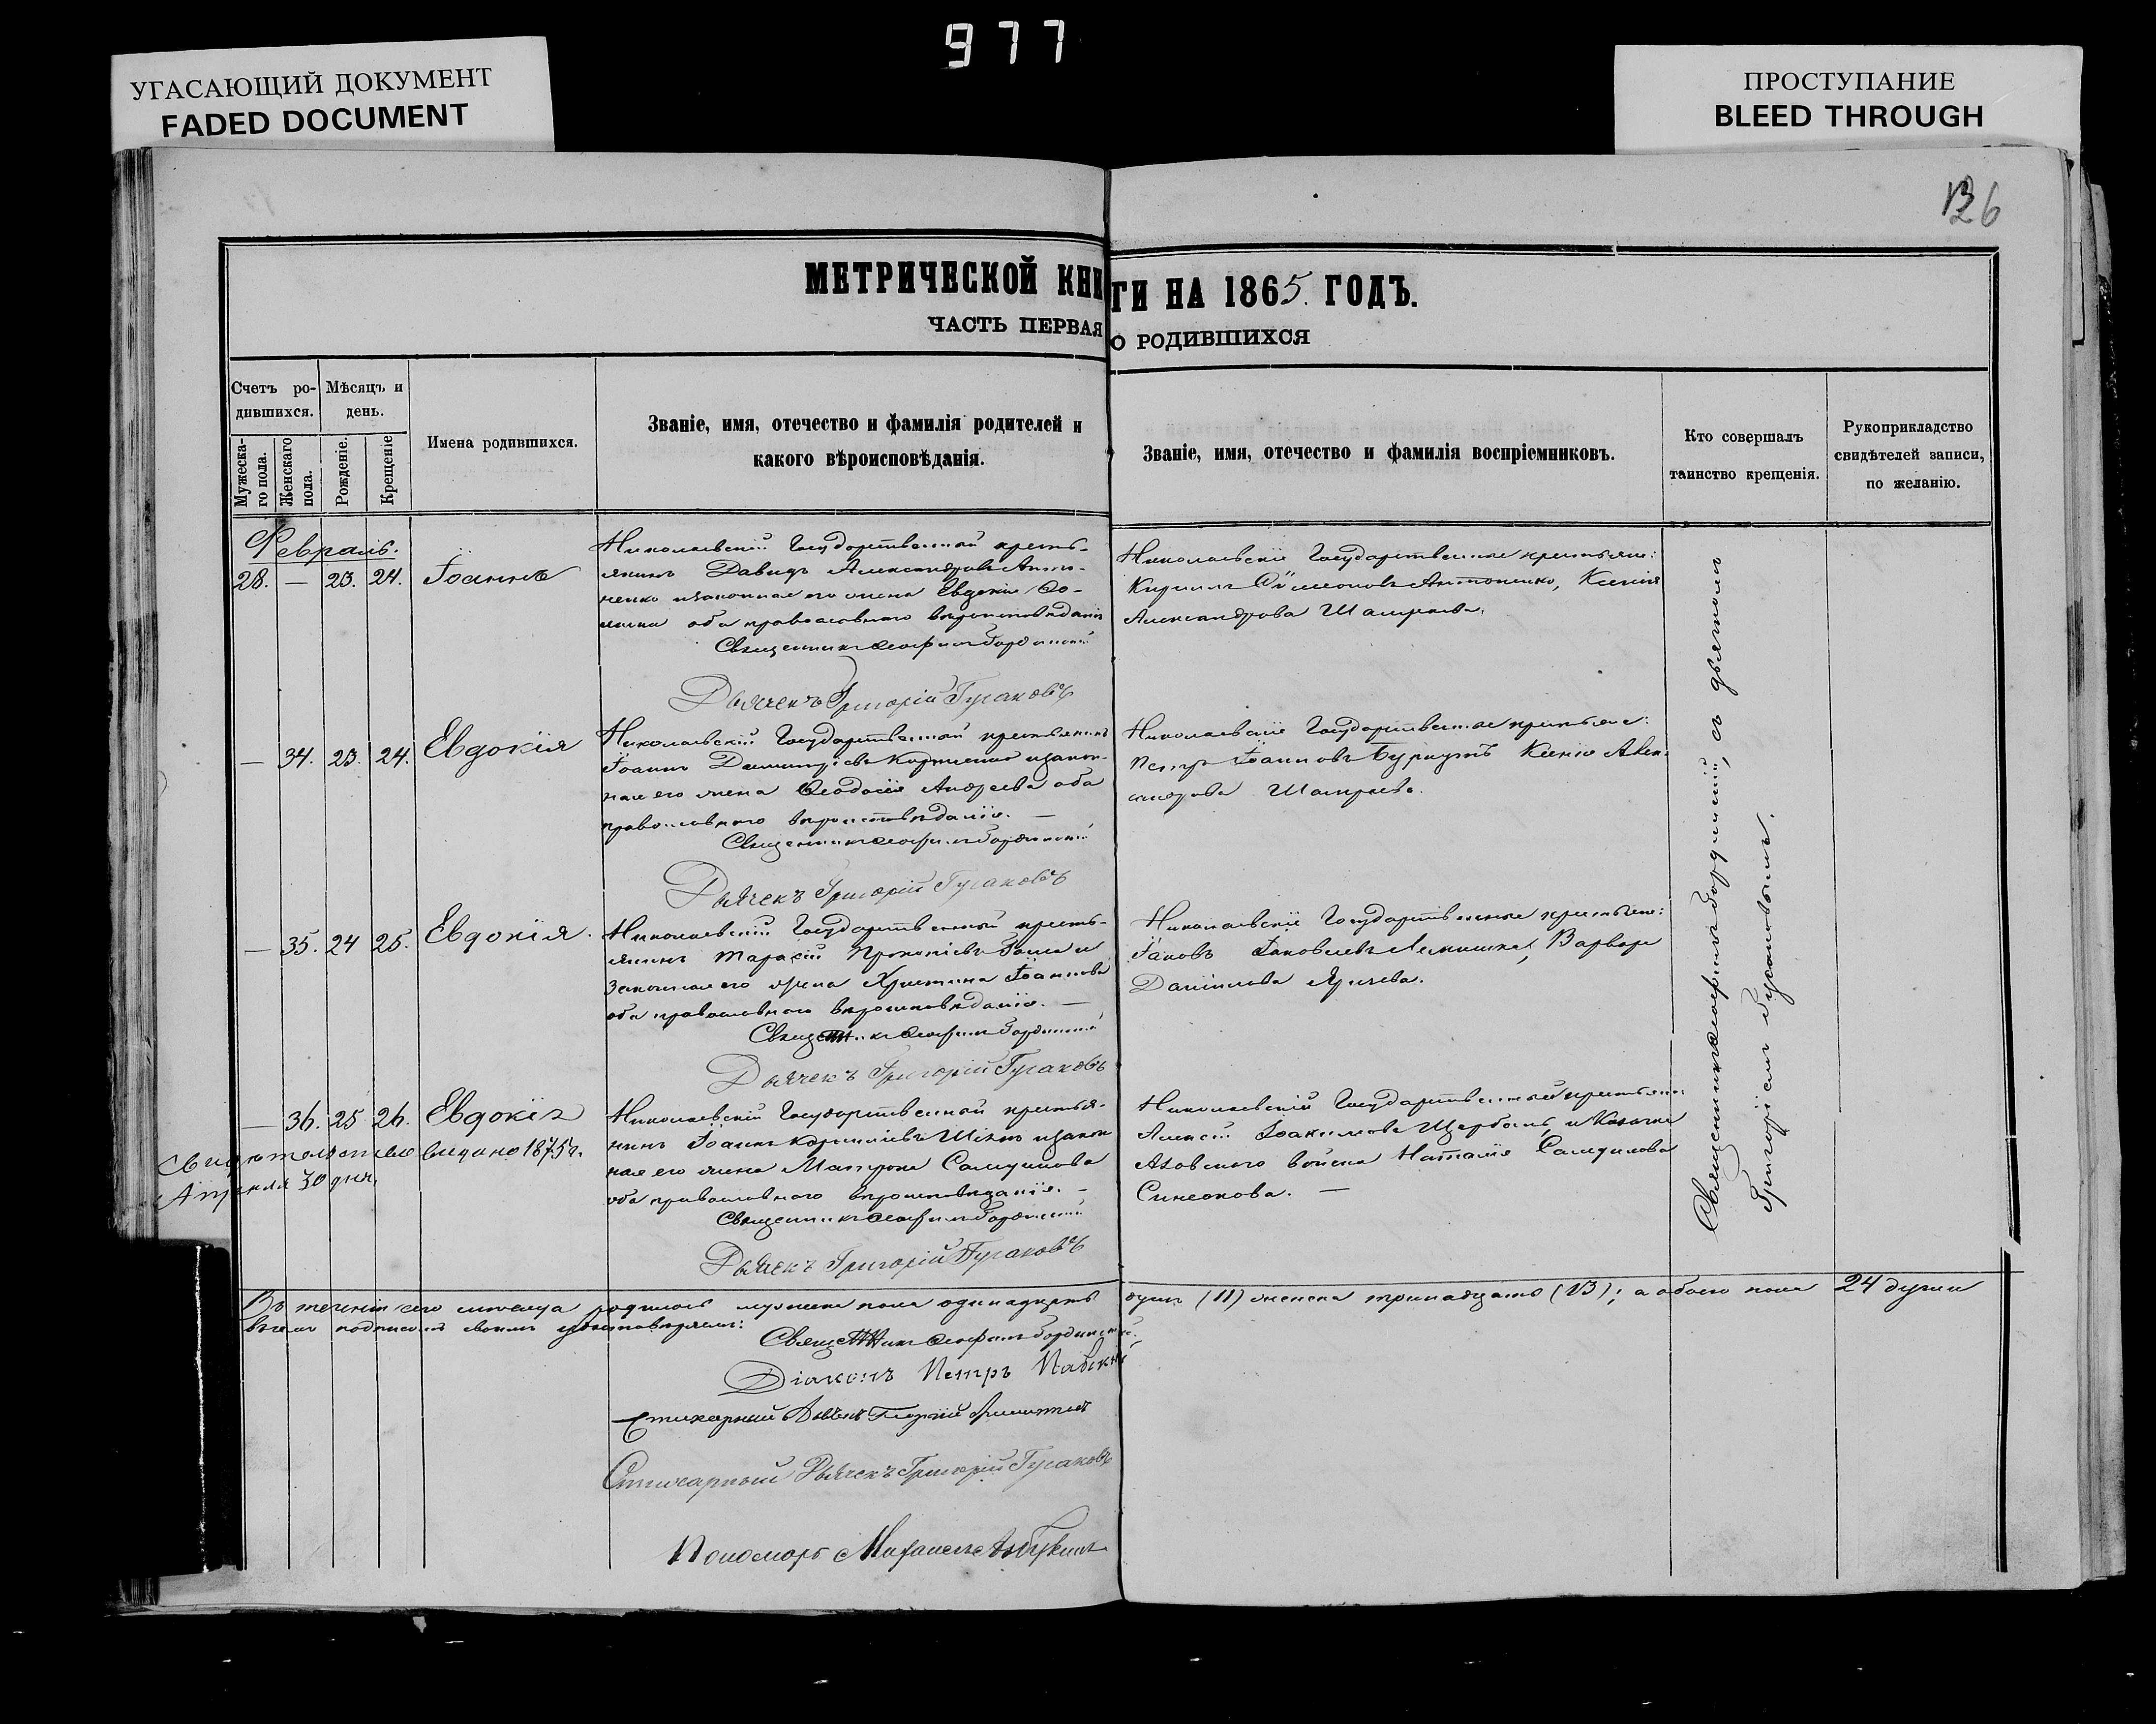 977
УГАСАЮЩИЙ ДОКУМЕНТ
FADED DOCUMENT
ПРОСТУПАНИЕ
BLEED THROUGH
126
МЕТРИЧЕСКОЙ КНИГИ НА 1865. ГОДЪ.
ЧАСТЬ ПЕРВАЯ О РОДИВШИХСЯ
Счетъ ро-
дившихся.
Мужеска-
го пола.
Женскаго
пола.
Мѣсяцъ и
день.
Рожденіе.
Крещеніе
Имена родившихся.
Званіе, имя, отечество и фамилія родителей и
какого вѣроисповѣданія.
Званіе, имя, отечество и фамилія воспріемниковъ.
Кто совершалъ
таинство крещенія.
Рукоприкладство
свидѣтелей записи,
по желанію.
Февраль.
28. — 23. 24. Іоаннъ
Николаевскій Государственной кресть-
янинъ Давидъ Александровъ Анто-
ненко и законная его жена Евдокія
оба православнаго вѣроисповѣданія
Священникъ
Дьячекъ Григорій Гусаковъ
Николаевскіе Государственные крестьяне:
Кириллъ Симеоновъ Антоненко, Ксенія
Александрова
— 34. 23. 24. Евдокія
Николаевскій Государственной крестьянинъ
Іоаннъ Димитріевъ и закон-
ная его жена Ѳеодосія Андреева оба
православнаго вѣроисповѣданія. —
Священникъ
Дьячекъ Григорій Гусаковъ
Николаевскіе Государственные крестьяне:
Петръ Іоанновъ Бурнутъ Ксенія Алек-
сандрова
— 35. 24 25. Евдокія.
Николаевскій Государственной кресть-
янинъ Тарасій Прокопіевъ и
законная его жена Христина Іоаннова
оба православнаго вѣроисповѣданія. —
Священникъ
Дьячекъ Григорій Гусаковъ
Николаевскіе Государственные крестьяне:
Іаковъ Іаковлевъ Варвара
Даніилова
— 36. 25 26. Евдокія
Свидѣтельство выдано 1875 г.
Апрѣля 30 дня,
Николаевскій Государственной крестья-
нинъ Іоаннъ Корниліевъ и закон
ная его жена Матрона Самуилова
оба православнаго вѣроисповѣданія. —
Священникъ
Дьячекъ Григорій Гусаковъ
Николаевскій Государственной крестьянинъ:
Алексій Іоакимовъ Щербань, и Козачка
Азовскаго войска Наталія Самуилова
Синеокова. —
Священникъ съ дьячкомъ
Григоріемъ Гусаковымъ.
Въ теченіи сего мѣсяца родилось мужеска пола одинадцать душъ (11) женска тринадцать (13); а обоего пола 24 души
въ чемъ подписомъ своимъ удостовѣряемъ:
Священникъ
Діаконъ Петръ
Стихарный Дьячекъ Георгій
Стихарный Дьячекъ Григорій Гусаковъ
Пономарь Михаилъ